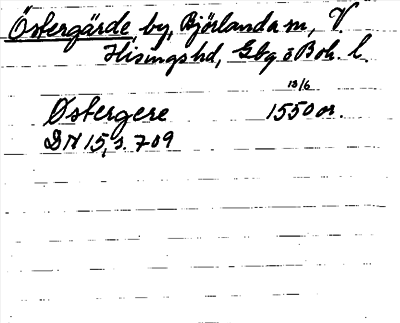 Östergärde, by, Björlanda sn, V.
Hisings hd, Gbg o Boh. l.
13/6
Østergere 1550 or.
DN 15, s. 709